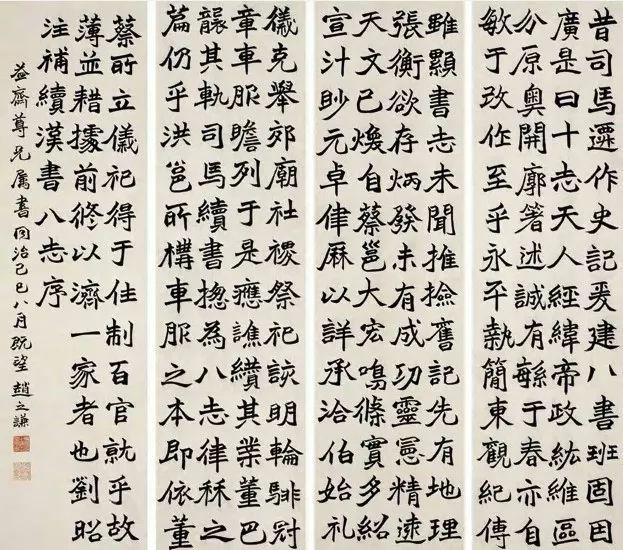 昔司馬遷作史記爰建八書班固因
廣是曰十志天人經緯帝政紘維區
分原奧開廓箸述誠有緐于春亦自
敏于改作至乎永平執簡東觀紀傳
雖顯書志未聞推撿舊記先有地理
張衡欲存炳發未有成功靈憲精遠
天文已煥自蔡邕大宏鳴條實多紹
宣汁眇元卓律厤以詳承洽伯始礼
儀克舉郊廟社禝祭祀該明輪騑冠
章車服贍列于是應譙纘其業董巴
襲其軌司馬續書揔為八志律秝之
篇仍乎洪邕所構車服之本即依董
蔡所立儀祀得于往制百官就乎故
薄並耤據前修以濟一家者也劉昭
注補續漢書八志序
益齋尊兄屬書同治己巳八月既望 趙之謙